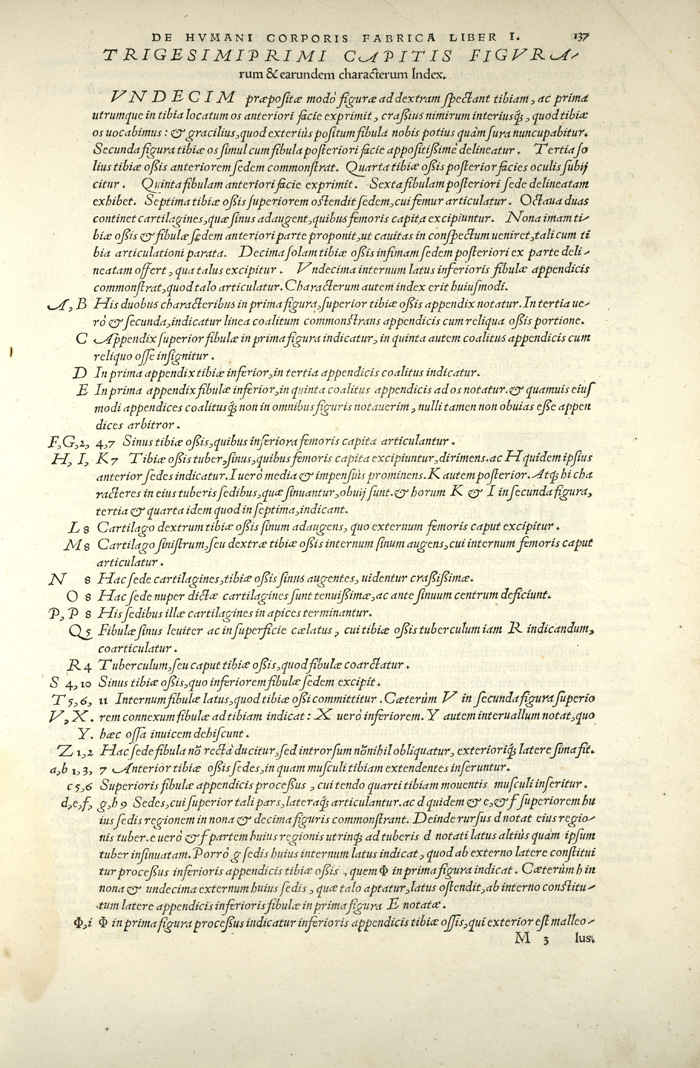 DE HVMANI CORPORIS FABRICA LIBER I. 137
TRIGESIMIPRIMI CAPITIS FIGVRA-
rum & earundem characterum Index.
VNDECIM præpositæ modò figuræ ad dextram spectant tibiam, ac prima
utrumque in tibia locatum os anteriori facie exprimit, craßius nimirum interiusq́;, quod tibiæ
os uocabimus: & gracilius, quod exteriùs positum fibula nobis potius quàm sura nuncupabitur.
Secunda figura tibiæ os simul cum fibula posteriori facie appositißimè delineatur. Tertia so
lius tibiæ oßis anteriorem sedem commonstrat. Quarta tibiæ oßis posterior facies oculis subij
citur. Quinta fibulam anteriori facie exprimit. Sexta fibulam posteriori sede delineatam
exhibet. Septima tibiæ oßis superiorem ostendit sedem, cui femur articulatur. Octaua duas
continet cartilagines, quæ sinus adaugent, quibus femoris capita excipiuntur. Nona imam ti-
biæ oßis & fibulæ sedem anteriori parte proponit, ut cauitas in conspectum ueniret, tali cum ti
bia articulationi parata. Decima solam tibiæ oßis infimam sedem posteriori ex parte deli-
neatam offert, qua talus excipitur. Vndecima internum latus inferioris fibulæ appendicis
commonstrat, quod talo articulatur. Characterum autem index erit huiusmodi.
A, B His duobus characteribus in prima figura, superior tibiæ oßis appendix notatur. In tertia ue-
rò & secunda, indicatur linea coalitum commonstrans appendicis cum reliqua oßis portione.
C Appendix superior fibulæ in prima figura indicatur, in quinta autem coalitus appendicis cum
reliquo osse insignitur.
D In prima appendix tibiæ inferior, in tertia appendicis coalitus indicatur.
E In prima appendix fibulæ inferior, in quinta coalitus appendicis ad os notatur. & quamuis eius
modi appendices coalitusq́; non in omnibus figuris notauerim, nulli tamen non obuias esse appen
dices arbitror.
F, G, 2, 4, 7 Sinus tibiæ oßis, quibus inferiora femoris capita articulantur.
H, I, K 7 Tibiæ oßis tuber, sinus, quibus femoris capita excipiuntur, dirimens. ac H quidem ipsius
anterior sedes indicatur. I uerò media & impensius prominens. K autem posterior. Atq; hi cha
racteres in eius tuberis sedibus, quæ sinuantur, obuij sunt. & horum K & I in secunda figura,
tertia & quarta idem quod in septima, indicant.
L 8 Cartilago dextrum tibiæ oßis sinum adaugens, quo externum femoris caput excipitur.
M 8 Cartilago sinistrum, seu dextræ tibiæ oßis internum sinum augens, cui internum femoris caput
articulatur.
N 8 Hac sede cartilagines, tibiæ oßis sinus augentes, uidentur craßißimæ.
O 8 Hac sede nuper dictæ cartilagines sunt tenuißimæ, ac ante sinuum centrum deficiunt.
P, P 8 His sedibus illæ cartilagines in apices terminantur.
Q 5 Fibulæ sinus leuiter ac in superficie cælatus, cui tibiæ oßis tuberculum iam R indicandum,
coarticulatur.
R 4 Tuberculum, seu caput tibiæ oßis, quod fibulæ coarctatur.
S 4, 10 Sinus tibiæ oßis, quo inferiorem fibulæ sedem excipit.
T 5, 6, 11 Internum fibulæ latus, quod tibiæ oßi committitur. Cæterùm V in secunda figura superio
V, X. rem connexum fibulæ ad tibiam indicat: X uerò inferiorem. Y autem interuallum notat, quo
Y. hæc ossa inuicem dehiscunt.
Z 1, 2 Hac sede fibula nõ rectà ducitur, sed introrsum nõnihil obliquatur, exterioriq́; latere sima fit.
a, b 1, 3, 7 Anterior tibiæ oßis sedes, in quam musculi tibiam extendentes inseruntur.
c 5, 6 Superioris fibulæ appendicis proceßus, cui tendo quarti tibiam mouentis musculi inseritur.
d, e, f, g, h 9 Sedes, cui superior tali pars, lateraq́; articulantur. ac d quidem & e, & f superiorem hu
ius sedis regionem in nona & decima figuris commonstrant. Deinde rursus d notat eius regio-
nis tuber. e uerò & f partem huius regionis utrinq; ad tuberis d notati latus altiùs quàm ipsum
tuber insinuatam. Porrò g sedis huius internum latus indicat, quod ab externo latere constitui
tur proceßus inferioris appendicis tibiæ oßis, quem Φ in prima figura indicat. Cæterùm h in
nona & undecima externum huius sedis, quæ talo aptatur, latus ostendit, ab interno constitu-
tum latere appendicis inferioris fibulæ in prima figura E notatæ.
Φ, i Φ in prima figura proceßus indicatur inferioris appendicis tibiæ ossis, qui exterior est malleo-
M 3 lus.